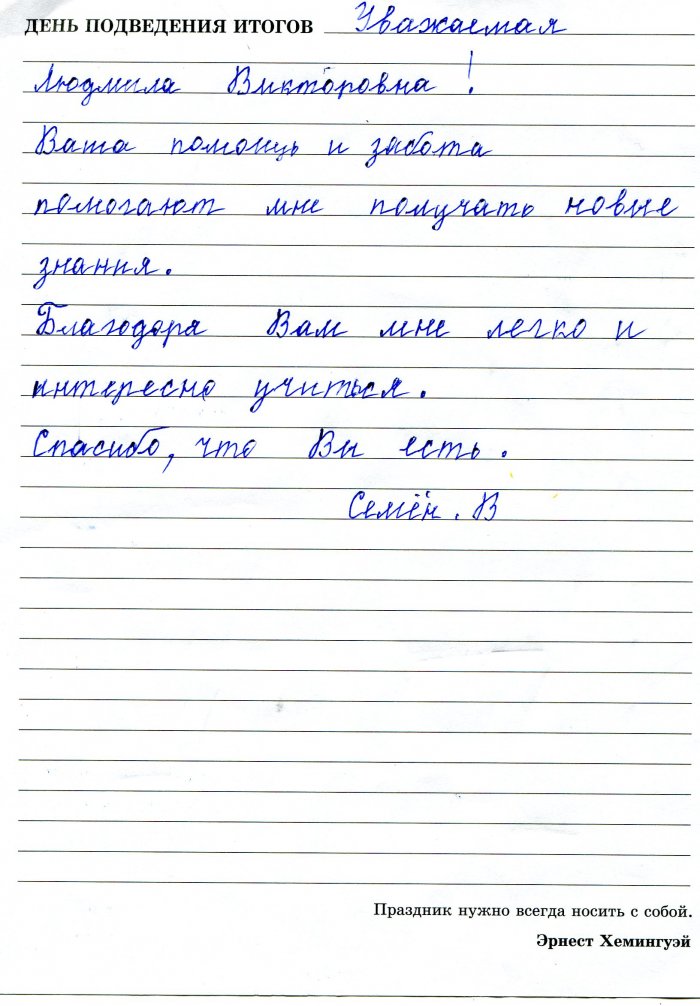 ДЕНЬ ПОДВЕДЕНИЯ ИТОГОВ Уважаемая
Людмила Викторовна !
Ваша помощь и забота
помогают мне получать новые
знания.
Благодоря Вам мне легко и
интересно учиться.
Спасибо, что Вы есть.
Семён. В
Праздник нужно всегда носить с собой.
Эрнест Хемингуэй